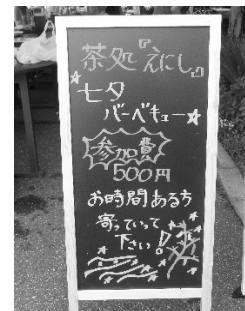 茶処『えにし』
七夕
バーベキュー
参加費
500円
お時間ある方
寄っていって
下さい!